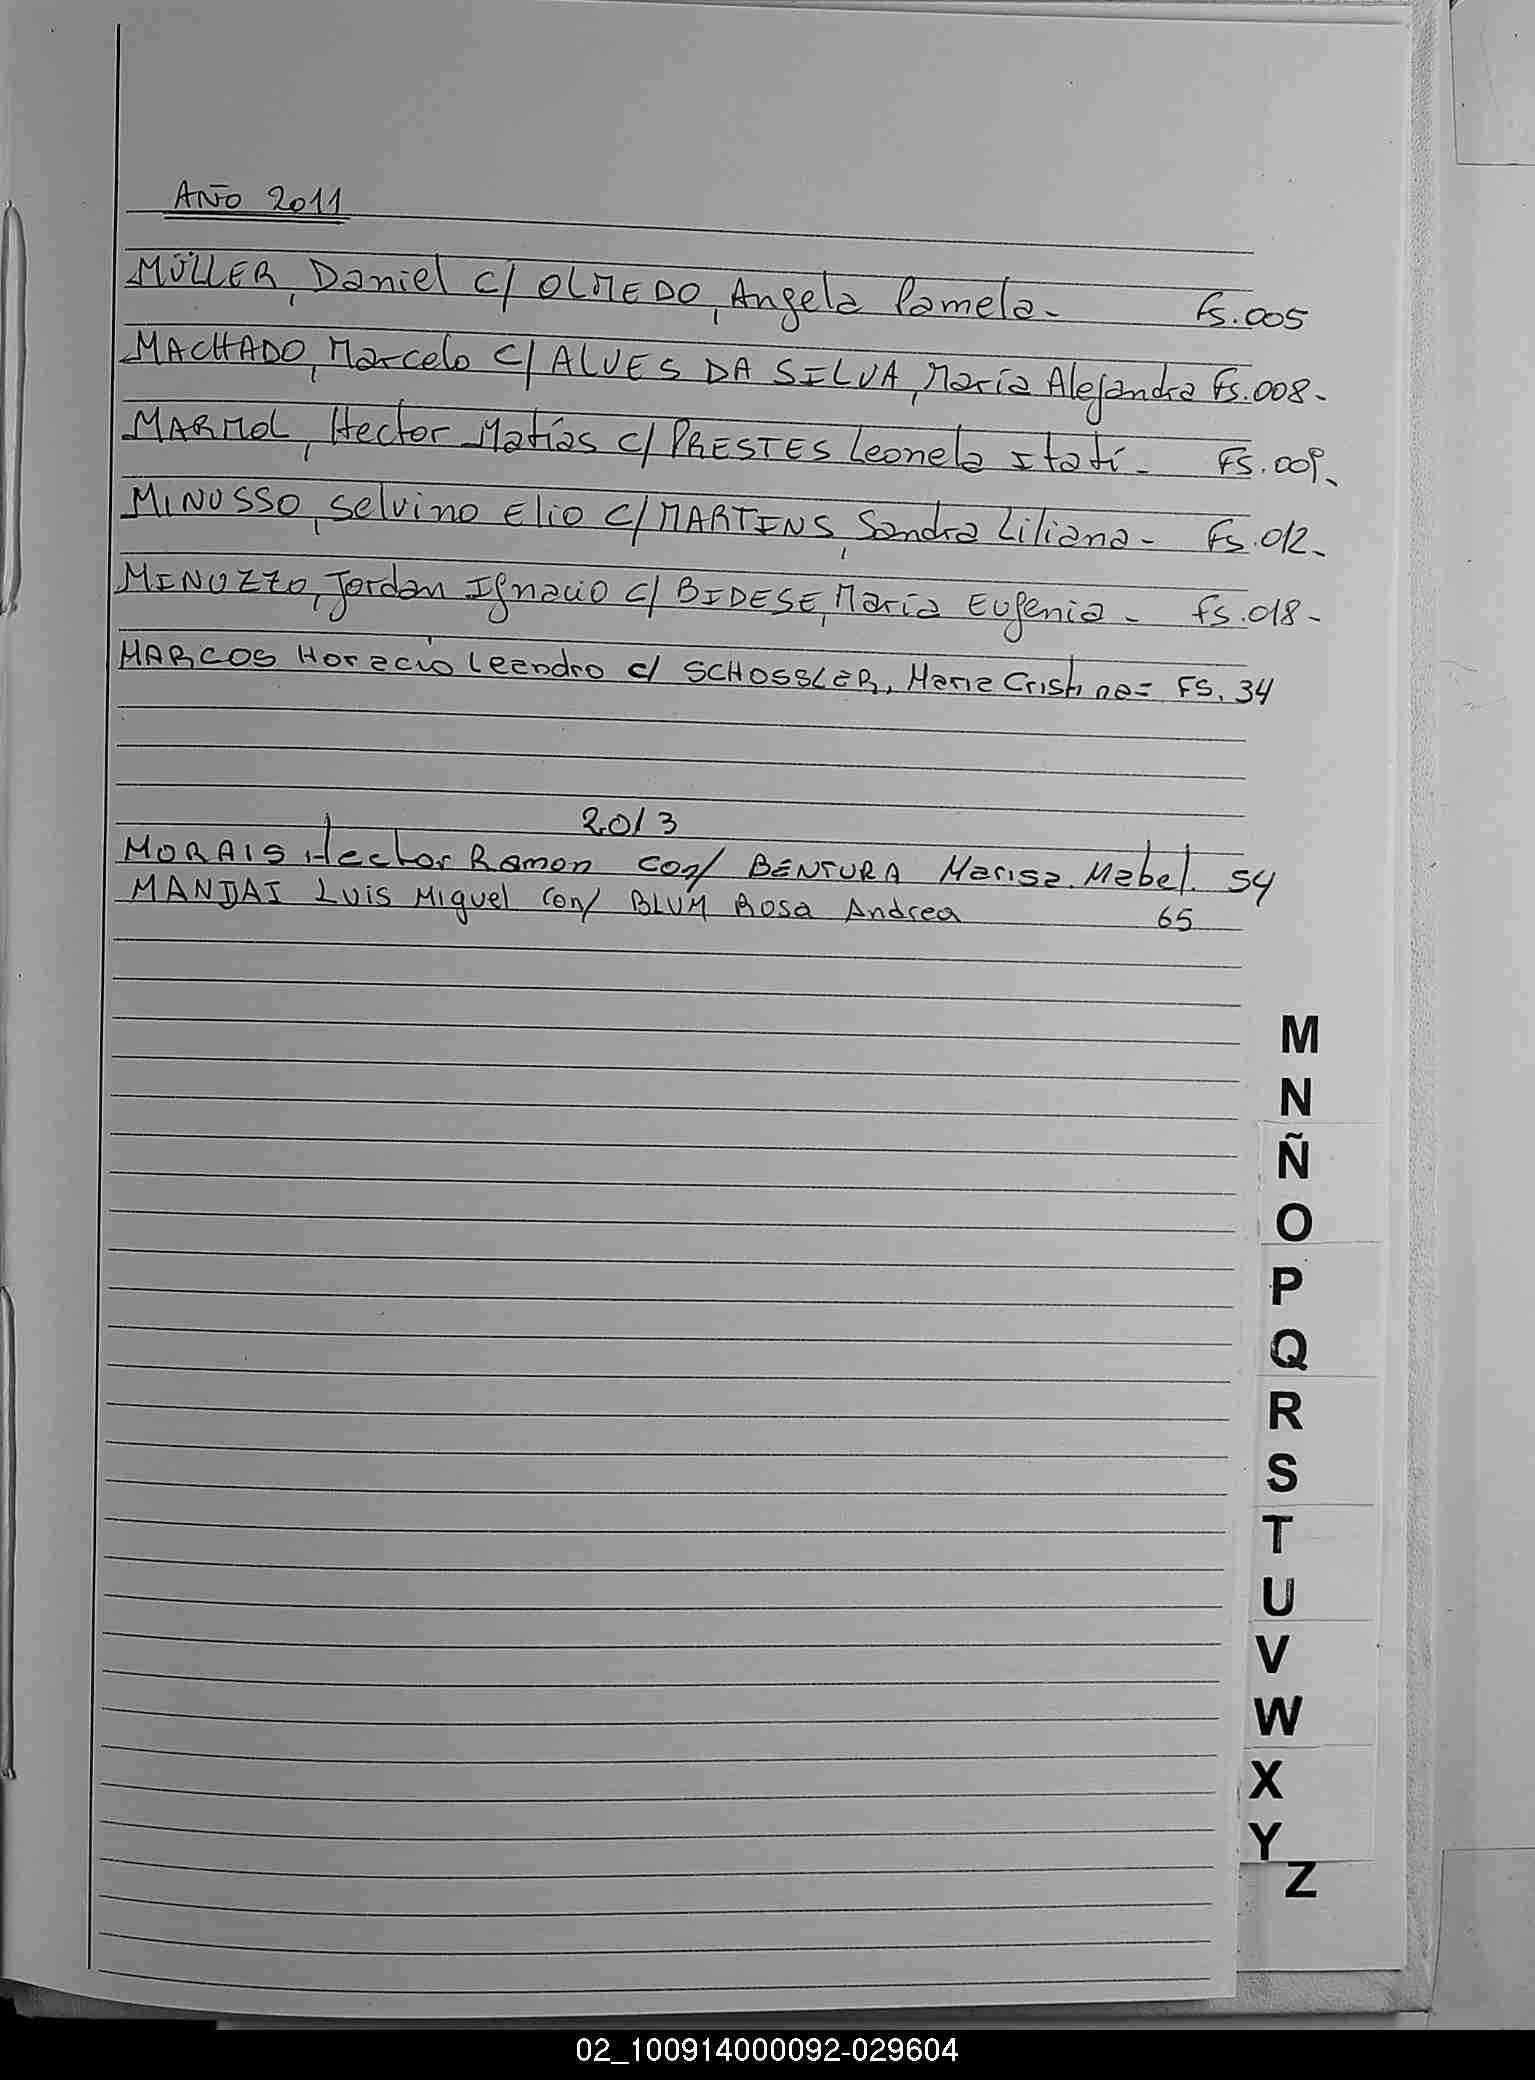 AÑO 2011
MÜLLER, Daniel C/ OLMEDO, Angela Pamela- Fs.005
MACHADO, Marcelo C/ ALVES DA SILVA, María Alejandra Fs.008-
MARMOL, Hector Matías C/ PRESTES Leonela Itatí- FS.009-
MINUSSO, Selvino Elio C/ MARTINS, Sandra Liliana- Fs.012-
MINUZZO, Jordan Ignacio C/ BIDESE, María Eugenia- Fs.018-
MARCOS Horacio Leandro c/ SCHOSSLER, Maria Cristina= FS. 34
2013
MORAIS Hector Ramon con/ BENTURA Marisa Mabel. 54
MANJAI Luis Miguel con/ BLUM Rosa Andrea 65
M
N
Ñ
O
P
Q
R
S
T
U
V
W
X
Y
Z
02_100914000092-029604